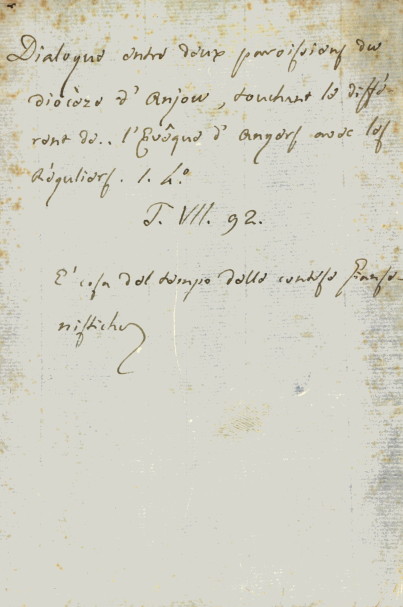 Dialogue entre deux paroissiens du
diocèze d' Anjou, touchant le diffé-
rent de.. l'Evêque d' Angers avec les
Réguliers. 1. 4.º
T. VII. 92.
E' cosa del tempo delle contese Gianse-
nistiche